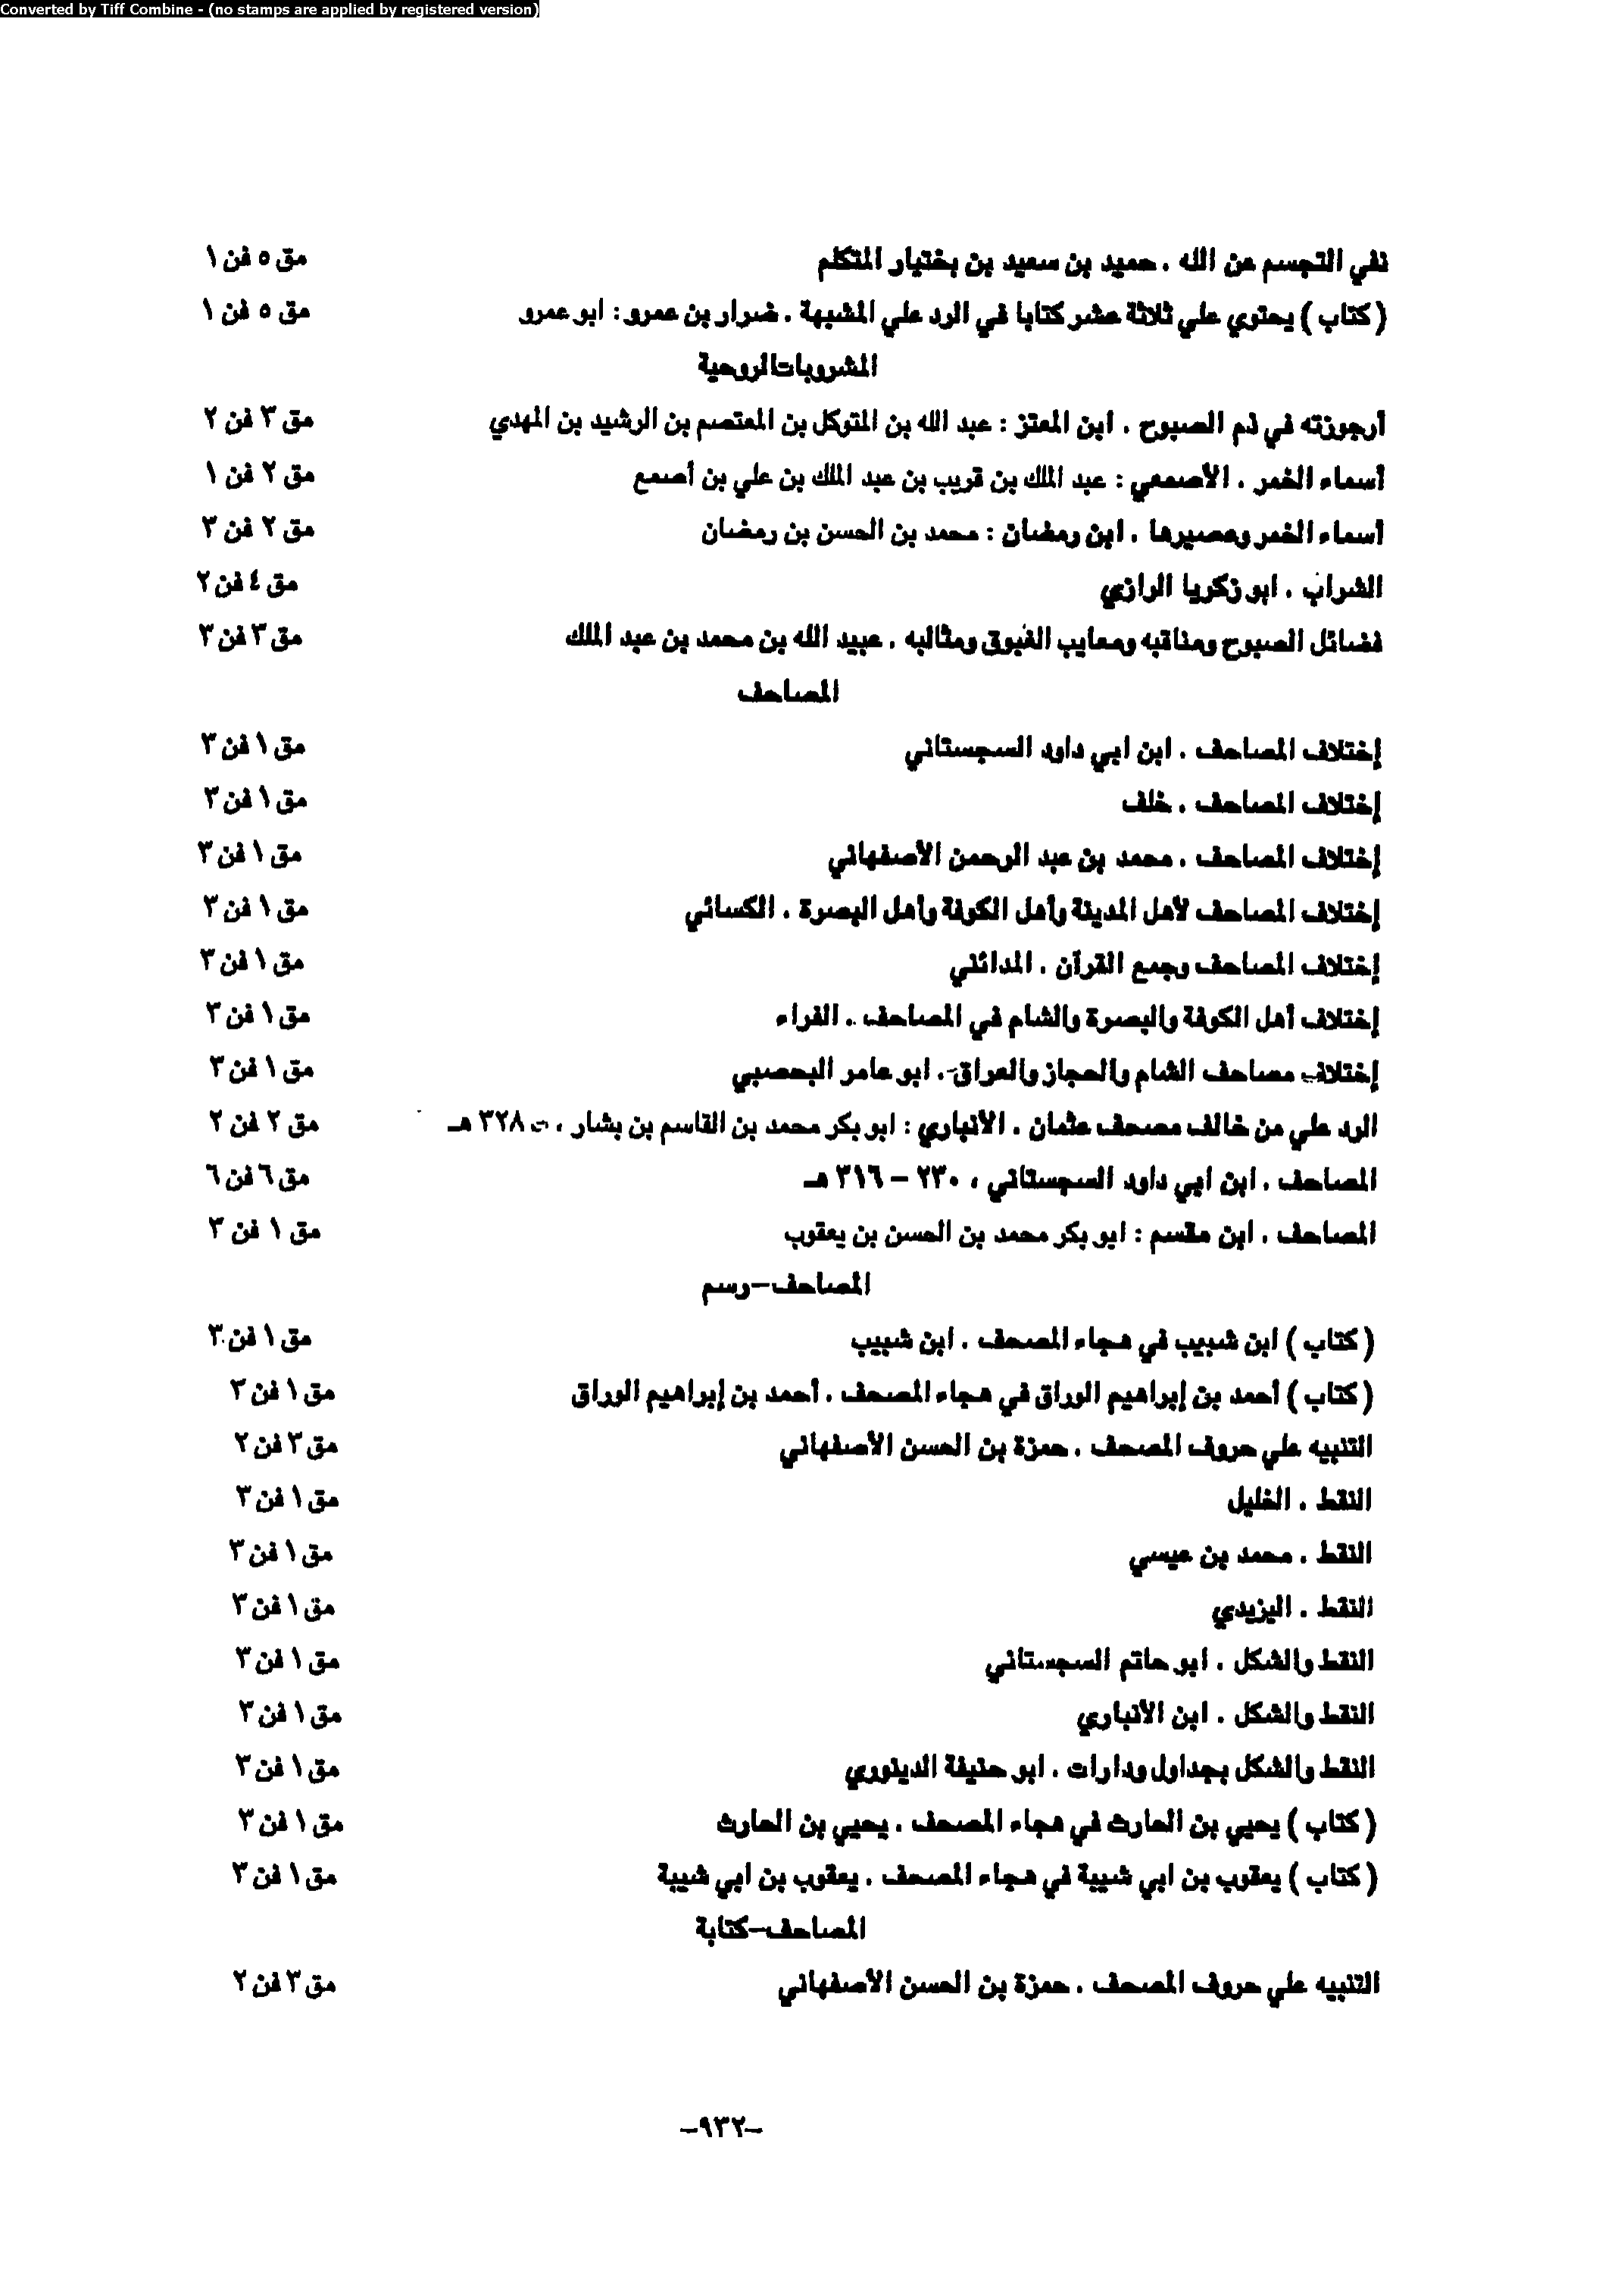 Converted by Tiff Combine - (no stamps are applied by registered version)
نفي التجسم عن الله . حميد بن سعيد بن بختيار المتكلم مق ٥ فن ١
( كتاب ) يحتوي علي ثلاثة عشر كتابا في الرد علي المشبهة . ضرار بن عمرو : ابو عمرو مق ٥ فن ١
المشروبات الروحية
أرجوزته في ذم الصبوح . ابن المعتز : عبد الله بن المتوكل بن المعتصم بن الرشيد بن المهدي مق ٣ فن ٢
أسماء الخمر . الأصمعي : عبد الملك بن قريب بن عبد الملك بن علي بن أصمع مق ٢ فن ١
أسماء الخمر وعصيرها . ابن رمضان : محمد بن الحسن بن رمضان مق ٢ فن ٣
الشراب . ابو زكريا الرازي مق ٤ فن ٢
فضائل الصبوح ومناقبه ومعايب الغبوق ومثالبه . عبيد الله بن محمد بن عبد الملك مق ٣ فن ٣
المصاحف
إختلاف المصاحف . ابن ابي داود السجستاني مق ١ فن ٣
إختلاف المصاحف . خلف مق ١ فن ٣
إختلاف المصاحف . محمد بن عبد الرحمن الأصفهاني مق ١ فن ٣
إختلاف المصاحف لأهل المدينة وأهل الكوفة وأهل البصرة . الكسائي مق ١ فن ٣
إختلاف المصاحف وجمع القرآن . المدائني مق ١ فن ٣
إختلاف أهل الكوفة والبصرة والشام في المصاحف . الفراء مق ١ فن ٣
إختلاف مصاحف الشام والحجاز والعراق . ابو عامر اليحصبي مق ١ فن ٣
الرد علي من خالف مصحف عثمان . الأنباري : ابو بكر محمد بن القاسم بن بشار ، ت ٣٢٨ هـ مق ٢ فن ٢
المصاحف . ابن ابي داود السجستاني ، ٢٣٠ – ٣١٦ هـ مق ٦ فن ٦
المصاحف . ابن مقسم : ابو بكر محمد بن الحسن بن يعقوب مق ١ فن ٣
المصاحف–رسم
( كتاب ) ابن شبيب في هجاء المصحف . ابن شبيب مق ١ فن ٣
( كتاب ) أحمد بن إبراهيم الوراق في هجاء المصحف . أحمد بن إبراهيم الوراق مق ١ فن ٣
التنبيه علي حروف المصحف . حمزة بن الحسن الأصفهاني مق ٣ فن ٢
النقط . الخليل مق ١ فن ٣
النقط . محمد بن عيسي مق ١ فن ٣
النقط . اليزيدي مق ١ فن ٣
النقط والشكل . ابو حاتم السجستاني مق ١ فن ٣
النقط والشكل . ابن الأنباري مق ١ فن ٣
النقط والشكل بجداول ودارات . ابو حنيفة الدينوري مق ١ فن ٣
( كتاب ) يحيي بن الحارث في هجاء المصحف . يحيي بن الحارث مق ١ فن ٣
( كتاب ) يعقوب بن ابي شيبة في هجاء المصحف . يعقوب بن ابي شيبة مق ١ فن ٣
المصاحف–كتابة
التنبيه علي حروف المصحف . حمزة بن الحسن الأصفهاني مق ٣ فن ٢
–٩٣٢–